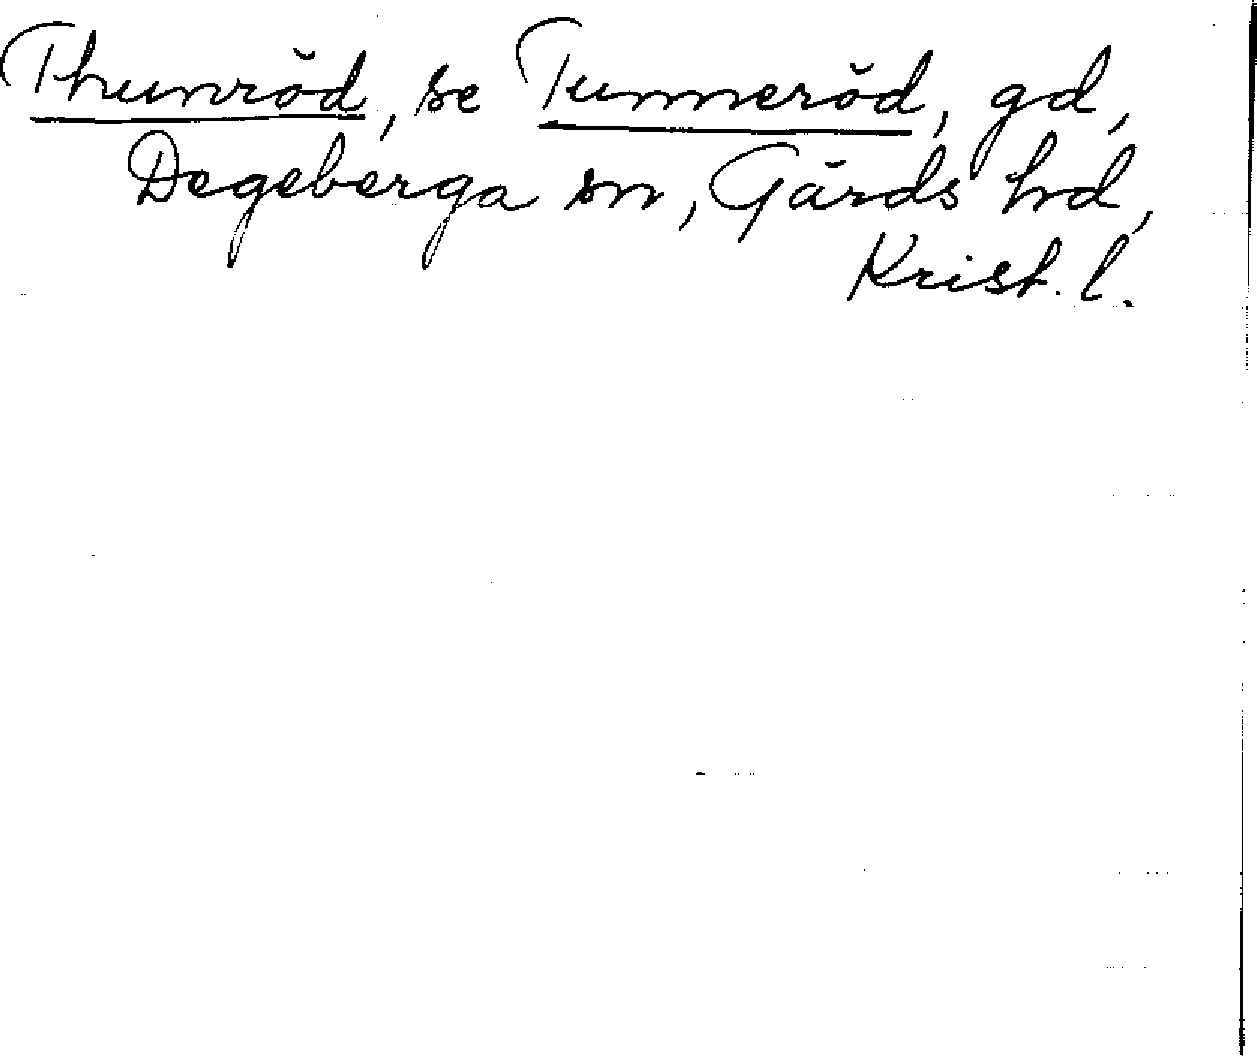 Thunröd, se Tunneröd, gd,
Degeberga sn, Gärds hd,
Krist. l.